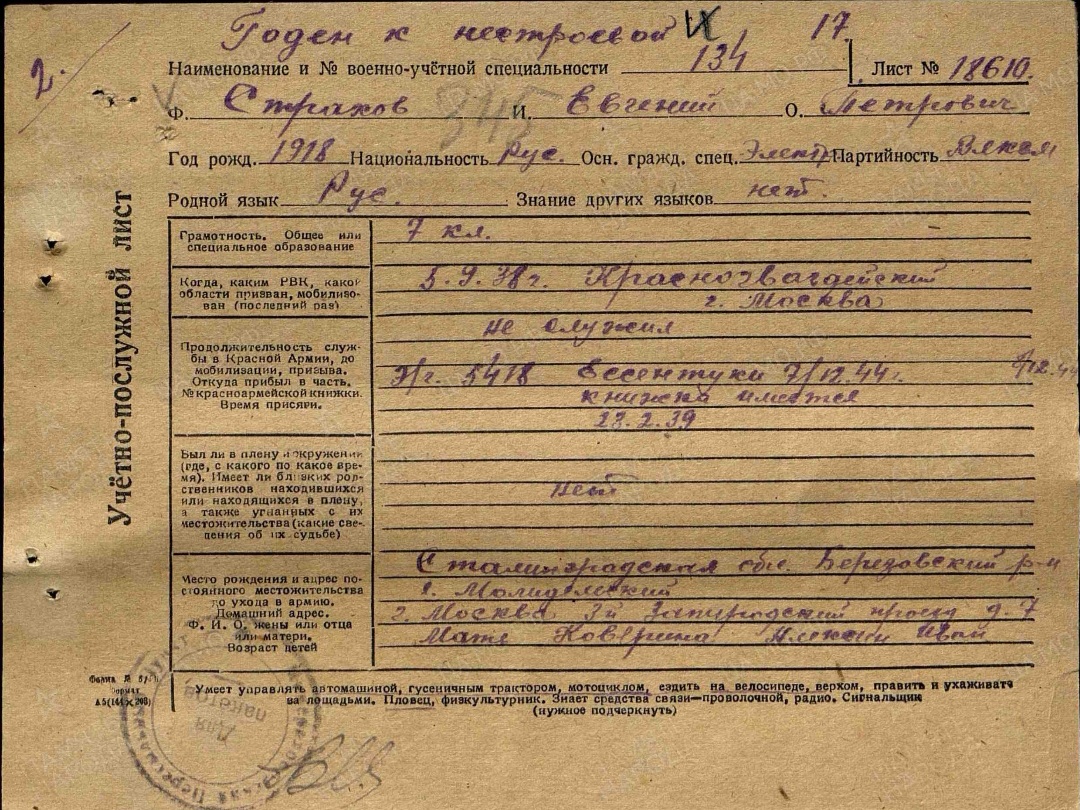 Годен к нестроевой IX 17
2.
Наименование и № военно-учётной специальности 134 Лист № 18610.
Ф. Страхов И. Евгений О. Петрович
345
Год рожд. 1918 Национальность Рус. Осн. гражд. спец. Электр Партийность Влксм
Родной язык Рус. Знание других языков нет.
УЧЁТНО-ПОСЛУЖНОЙ ЛИСТ
Грамотность. Общее или
специальное образование
7 кл.
Когда, каким РВК, какой
области призван, мобилизо-
ван (последний раз)
5.9.38 г. Красногвардейский
г. Москва
Продолжительность служ-
бы в Красной Армии, до
мобилизации, призыва.
Откуда прибыл в часть.
№ красноармейской книжки.
Время присяги.
не служил
Э/г. 5418 Ессентуки 7/12.44 г.
книжка имеется
23.2.39
Был ли в плену и окружении
(где, с какого по какое вре-
мя). Имеет ли близких род-
ственников находившихся
или находящихся в плену,
а также угнанных с их
местожительства (какие све-
дения об их судьбе)
нет
Место рождения и адрес по-
стоянного местожительства
до ухода в армию.
Домашний адрес.
Ф. И. О. жены или отца
или матери.
Возраст детей
Сталинградская обл. Березовский р-н
г. Москва 3й проезд д. 7
Мать
Форма № 6
Формат
А5 (144 х 203)
Умеет управлять автомашиной, гусеничным трактором, мотоциклом, ездить на велосипеде, верхом, править и ухаживать
за лошадьми. Пловец, физкультурник. Знает средства связи—проволочной, радио. Сигнальщик
(нужное подчеркнуть)